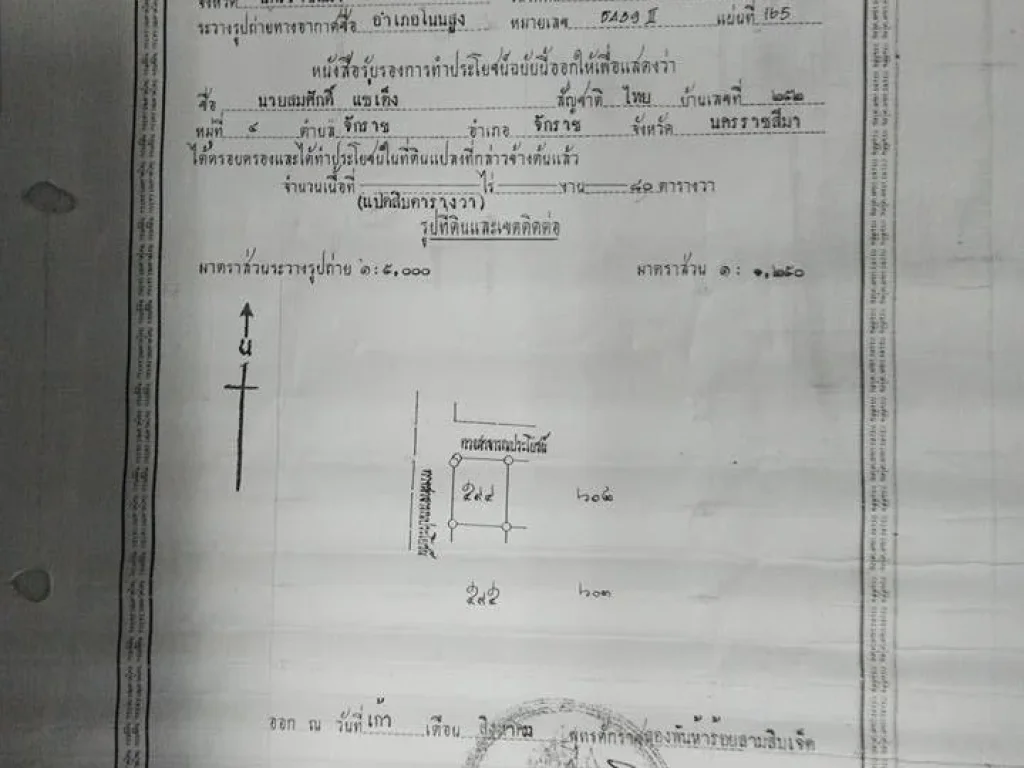 ระวางรูปถ่ายทางอากาศชื่อ อำเภอโนนสูง หมายเลข 5439 II แผ่นที่ 165
หนังสือรับรองการทำประโยชน์ฉบับนี้ออกให้เพื่อแสดงว่า
ชื่อ นายสมศักดิ์ แซเต็ง สัญชาติ ไทย บ้านเลขที่ ๒๕๒
หมู่ที่ ๔ ตำบล จักราช อำเภอ จักราช จังหวัด นครราชสีมา
ได้ครอบครองและได้ทำประโยชน์ในที่ดินแปลงที่กล่าวข้างต้นแล้ว
จำนวนเนื้อที่ ไร่ งาน ๘๐ ตารางวา
(แปดสิบตารางวา)
รูปที่ดินและเขตติดต่อ
มาตราส่วนระวางรูปถ่าย ๑:๕,๐๐๐ มาตราส่วน ๑ : ๑,๒๕๐
น
ทางสาธารณประโยชน์
ทางสาธารณประโยชน์
๕๙๔
๖๐๓
๕๙๕
ออก ณ วันที่ เก้า เดือน สิงหาคม พุทธศักราชสองพันห้าร้อยสามสิบเจ็ด